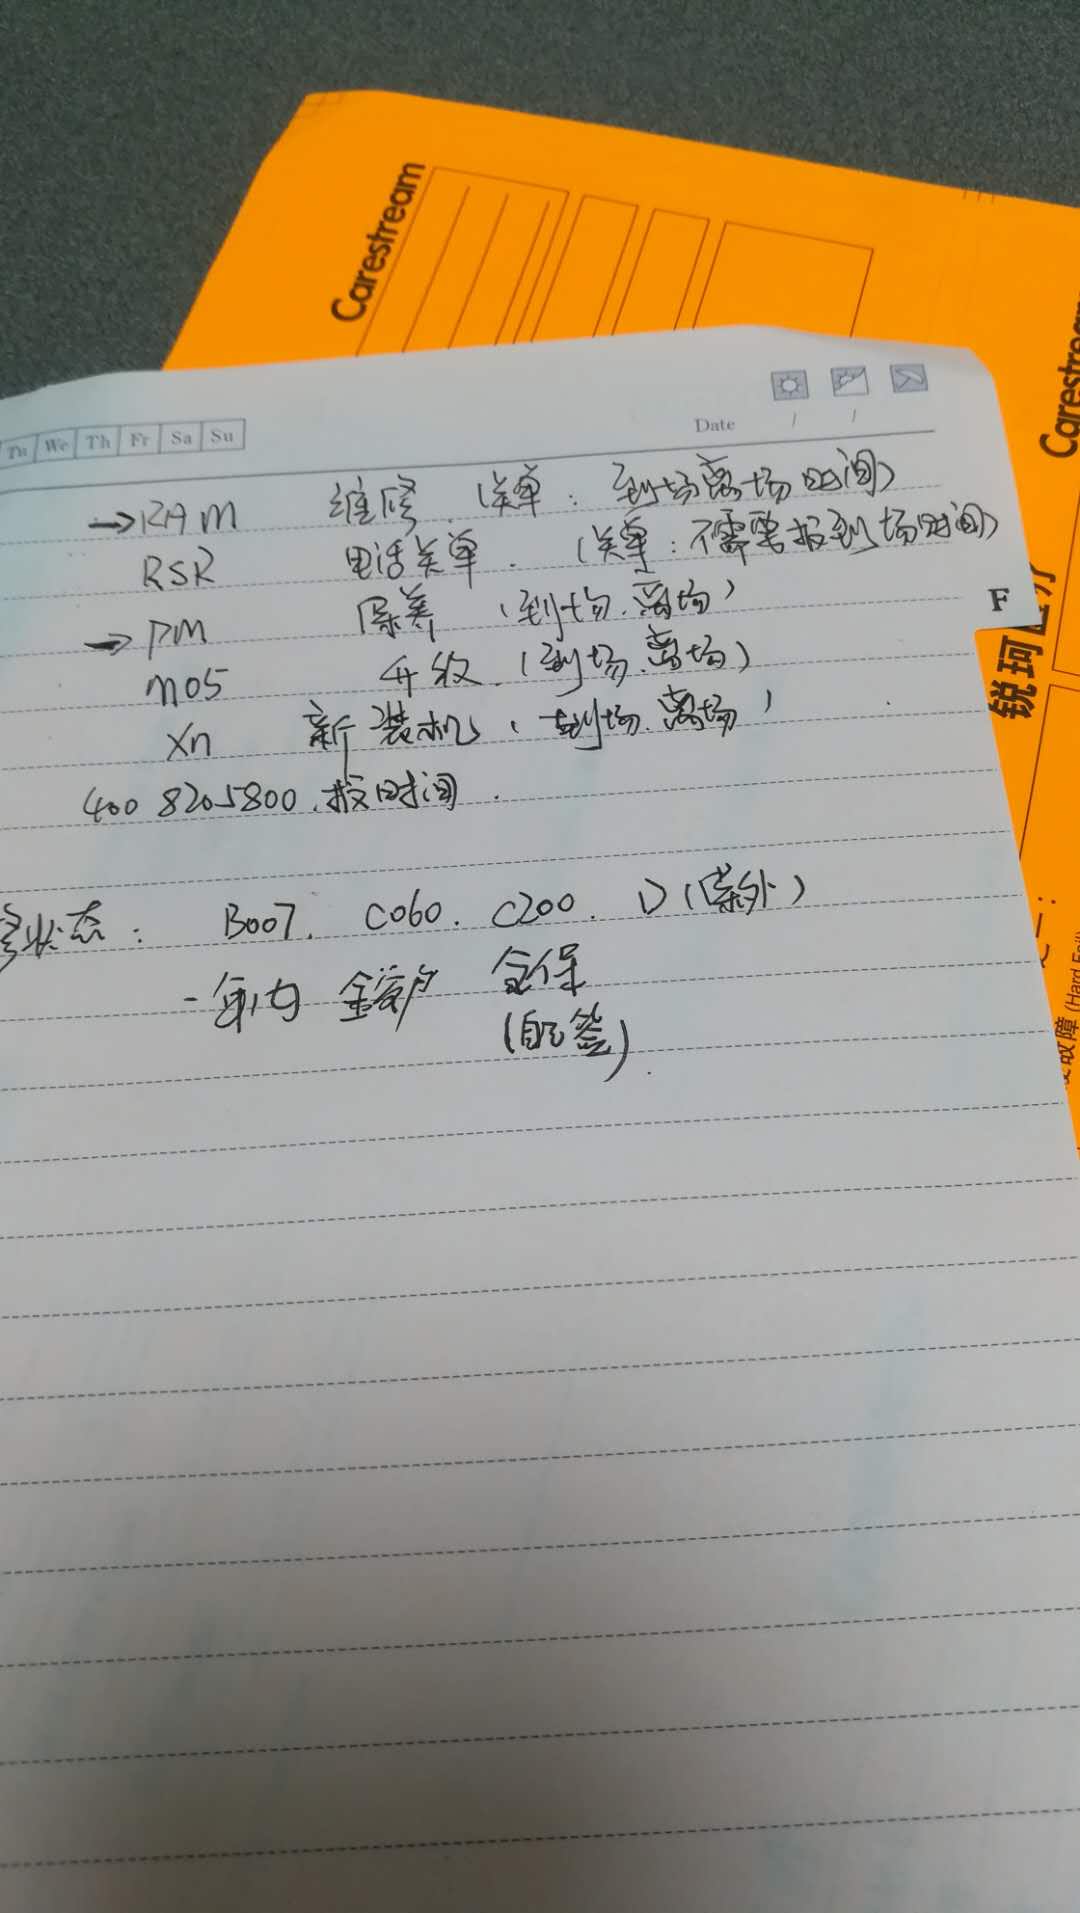 Carestream
Carestream
锐珂医疗
障 (Hard Fail)
Tu We Th Fr Sa Su
Date / /
→RAM 维修. (关单: 到场离场时间)
RSR 电话关单. (关单: 不需要报到场时间)
→PM 保养 (到场.离场)
M05 升级. (到场.离场)
Xn 新装机 (到场.离场)
400 8205800.报时间.
F
状态: B007. C060. C200. D (保外)
一年内 金客户 全保
(自己签).